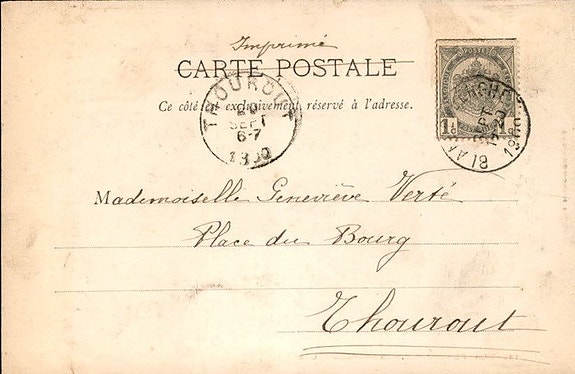 Imprimé
CARTE POSTALE
Ce côté est exclusivement réservé à l'adresse.
THOUROUT
20
SEPT
6-7
1900
1c 1c
SEPT
1900
Mademoiselle Geneviève Verté
Place du Bourg
Thourout